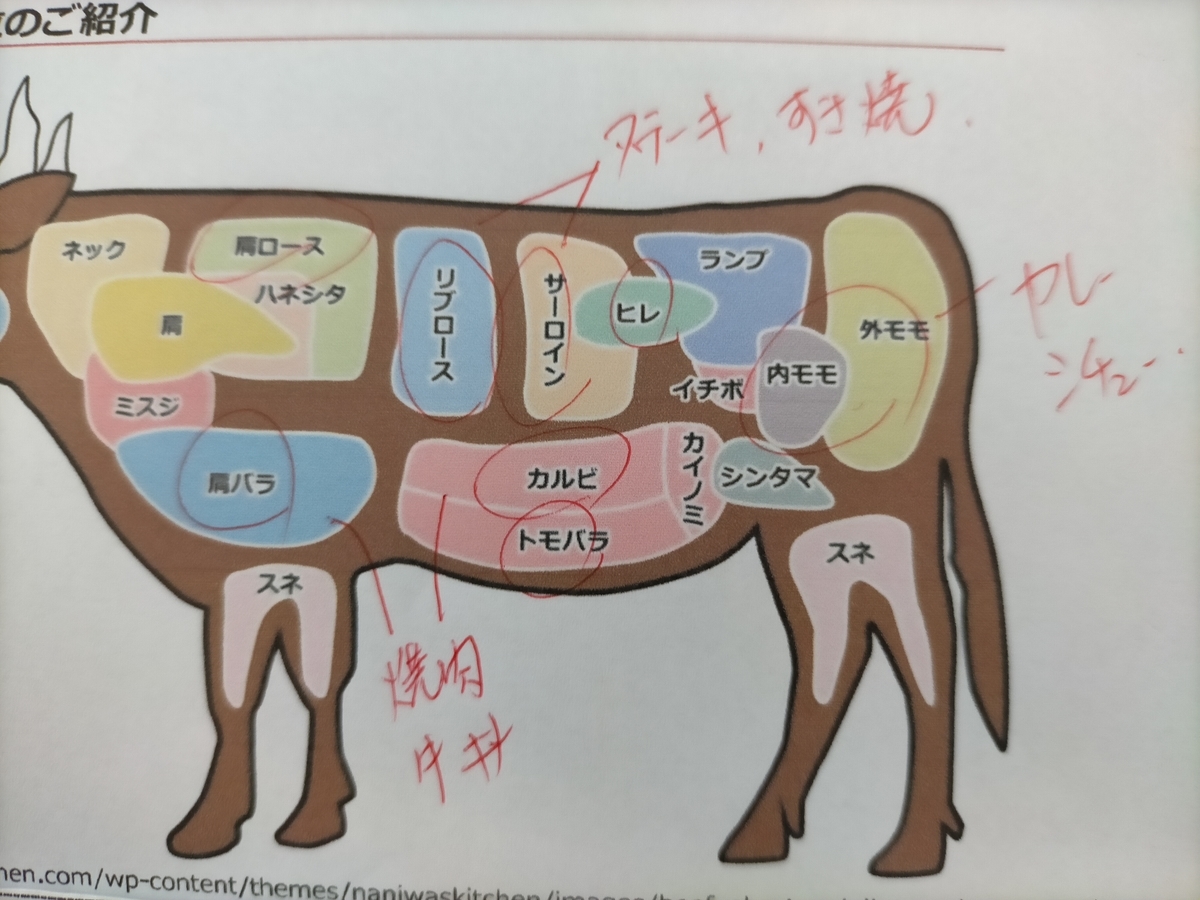 のご紹介
ステーキ、すき焼
ネック
肩ロース
ハネシタ
肩
ミスジ
肩バラ
リブロース
サーロイン
ヒレ
ランプ
イチボ
内モモ
外モモ
カレー
シチュー
カルビ
カイノミ
トモバラ
シンタマ
スネ
スネ
焼肉
牛丼
hen.com/wp-content/themes/naniwaskitchen/images/